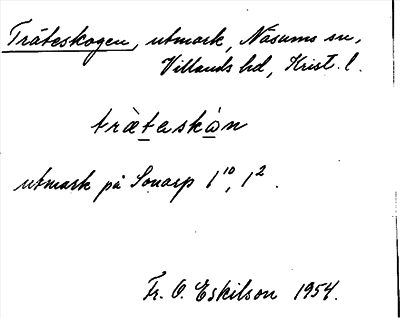 Träteskogen, utmark, Näsums sn,
Villands hd, Krist. l.
trä̀taskån
utmark på Sonarp 1¹⁰, 1².
Fr. O. Eskilson 1954.